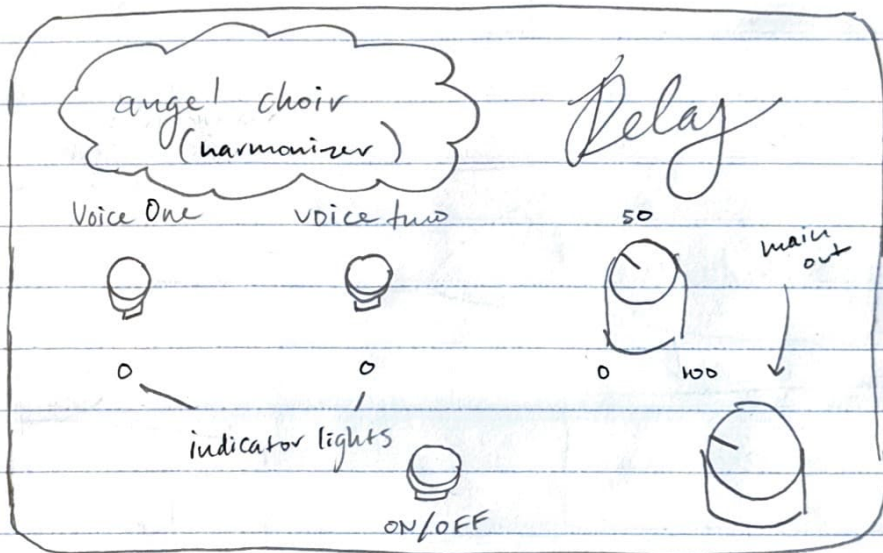 angel choir
(harmonizer)
Delay
Voice One
voice two
50
main
out
0
0
0
100
indicator lights
ON/OFF